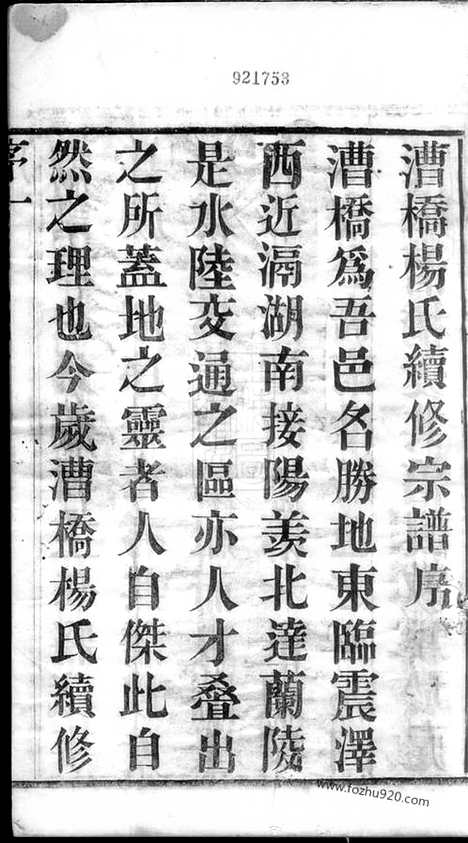 921753
漕橋楊氏續修宗譜序
漕橋爲吾邑名勝地東臨震澤
西近滆湖南接陽羡北達蘭陵
是水陸交通之區亦人才叠出
之所蓋地之靈者人自傑此自
然之理也今歲漕橋楊氏續修
序一
www.fozhu920.com